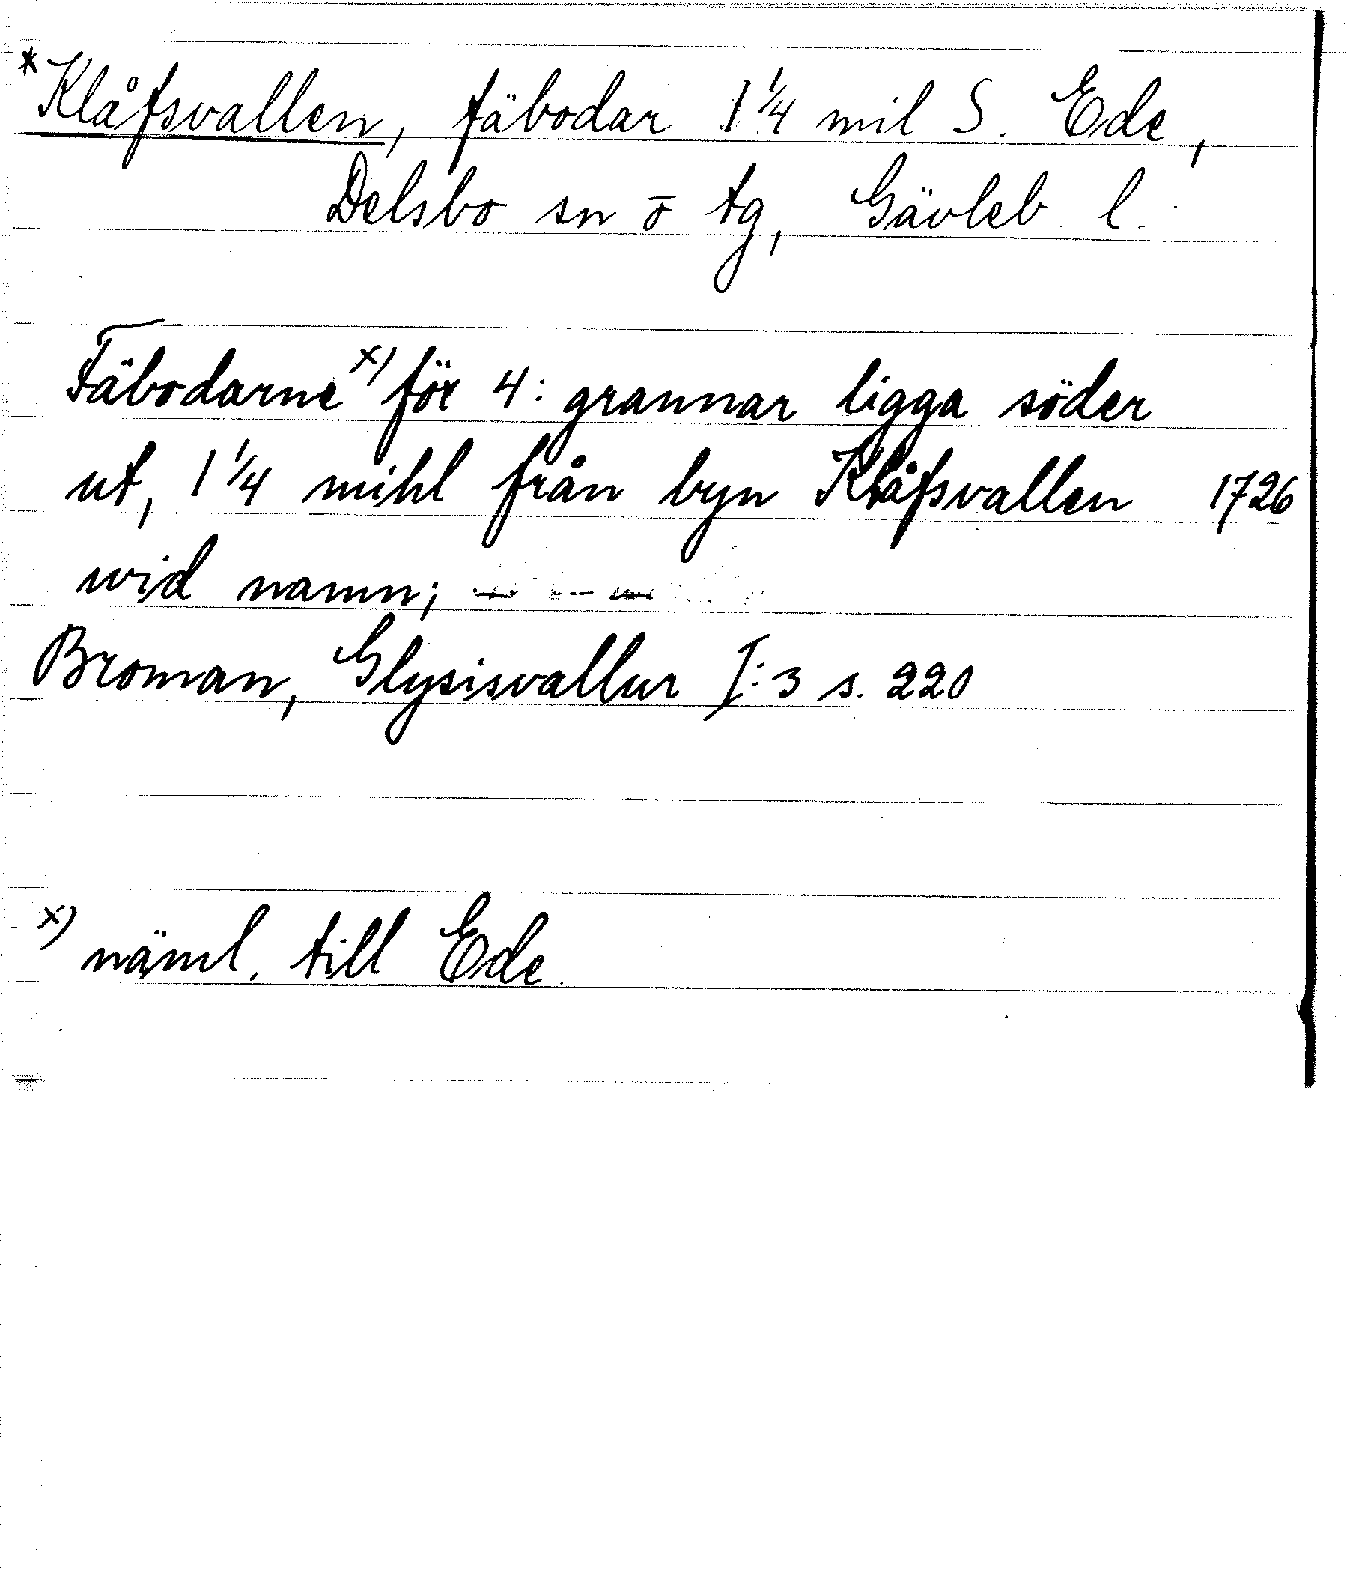 *Klåfsvallen, fäbodar 1 1/4 mil S. Ede,
Delsbo sn o tg, Gävleb l.
Fäbodarne x) för 4: grannar ligga söder
ut, 1 1/4 mihl från byn Klåfsvallen 1726
wid namn; — -- —
Broman, Glysisvallur I:3 s. 220
x) näml. till Ede.